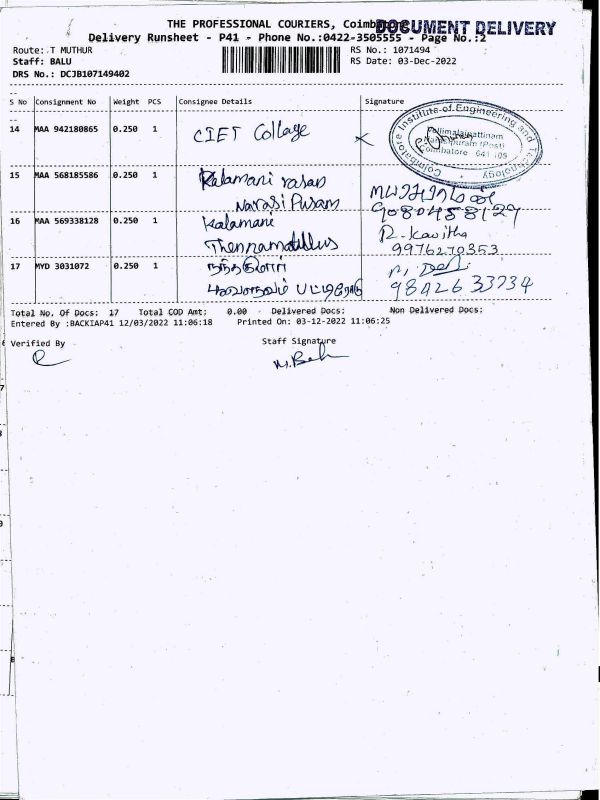 THE PROFESSIONAL COURIERS, Coimbatore
DOCUMENT DELIVERY
Delivery Runsheet - P41 - Phone No.:0422-3505555 - Page No.:2
Route: T MUTHUR
RS No.: 1071494
Staff: BALU
RS Date: 03-Dec-2022
DRS No.: DCJB107149402
S No Consignment No Weight PCS Consignee Details Signature
14 MAA 942180865 0.250 1 CIET Collage
Coimbatore Institute of Engineering and Technology
Vellimalaipattinam
Narasipuram (Post)
Coimbatore 641 109
15 MAA 568185586 0.250 1 Kalamani rasan
Narasi Puram
9080458129
16 MAA 569338128 0.250 1 Kalamani R. Kavitha
9976270353
17 MYD 3031072 0.250 1 நந்தகுமார்
98426 33734
Total No. Of Docs: 17 Total COD Amt: 0.00 Delivered Docs: Non Delivered Docs:
Entered By :BACKIAP41 12/03/2022 11:06:18 Printed On: 03-12-2022 11:06:25
Verified By Staff Signature